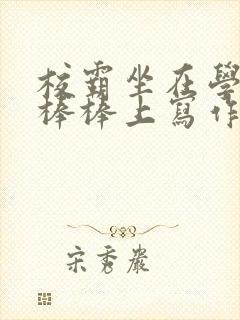 校霸坐在學
棒棒上寫作
宋秀嚴